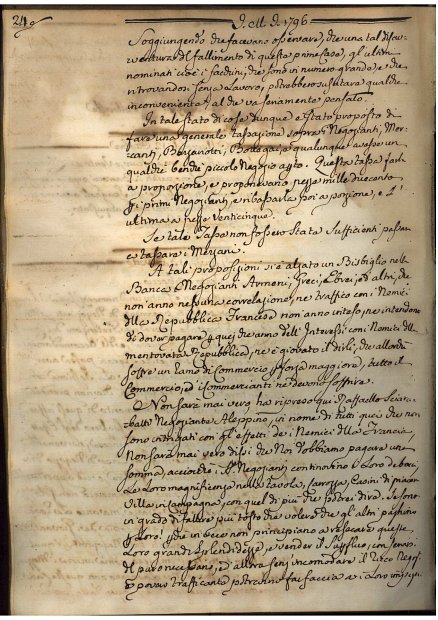 D. M. D. 1796
Soggiungendo che facevano osservare, che una tal disav-
ventura del fallimento di queste prime Case, gl'ultimi
nominati cioè i facchini, che sono in numero grande, e che
ritrovandosi senza Lavoro, potrebbero suscitare qualche
inconveniente, al che va seriamente pensato.
In tale stato di cose dunque è stato proposto di
fare una generale tassazione sopra i Negozianti, Mer-
canti, Bottegai, e qualunque avesse un
qualche benché piccolo Negozio aperto. Questa tassa farla
a proporzione, e proponevano pezze mille duecento
i primi Negozianti, e ribassarla poi a porzione, e
ultima a pezze venticinque.
Se tale Tassa non fosse stata sufficiente passare
a tassare i Mezzani.
A tali proposizioni si è alzato un Bisbiglio nella
Banca, Negozianti Armeni, Greci, Ebrei, ed altri, che
non anno nessuna correlazione, ne traffico con i Nemici
della Repubblica Francese non anno inteso, ne intendono
di dover pagare quei che anno dell'Interessi con i Nemici della
mentovata Repubblica, ne è giovato il dirli, che allorché
soffre un Ramo di Commercio (forza maggiore), tutto il
Commercio, ed i Commercianti ne devono soffrire.
Non sarà mai vero, ha ripreso qui Raffaello
Negoziante Aleppino, in nome di tutti quei che non
sono intrigati con gl'effetti de i Nemici della Francia,
Non sarà mai vero dissi che Noi dobbiamo pagare una
somma, acciocché i SS.ri Negozianti continovino i Loro debari,
Le Loro magnificenze nelle tavole, Carrozze, Casini di piacere
Ville in Campagna, con quel di più che potrei dire. Se sono
in grado di fallire più tosto che volere che gl'altri paghino
p. Loro! che in vece non principiano a resecare queste
Loro grandi Splendidezze, e vender il superfluo, con servarsi
del puro necessario, ed allora senza incomodare il Ricco Negoz.e
e povero trafficante potranno far faccia a i Loro impegni